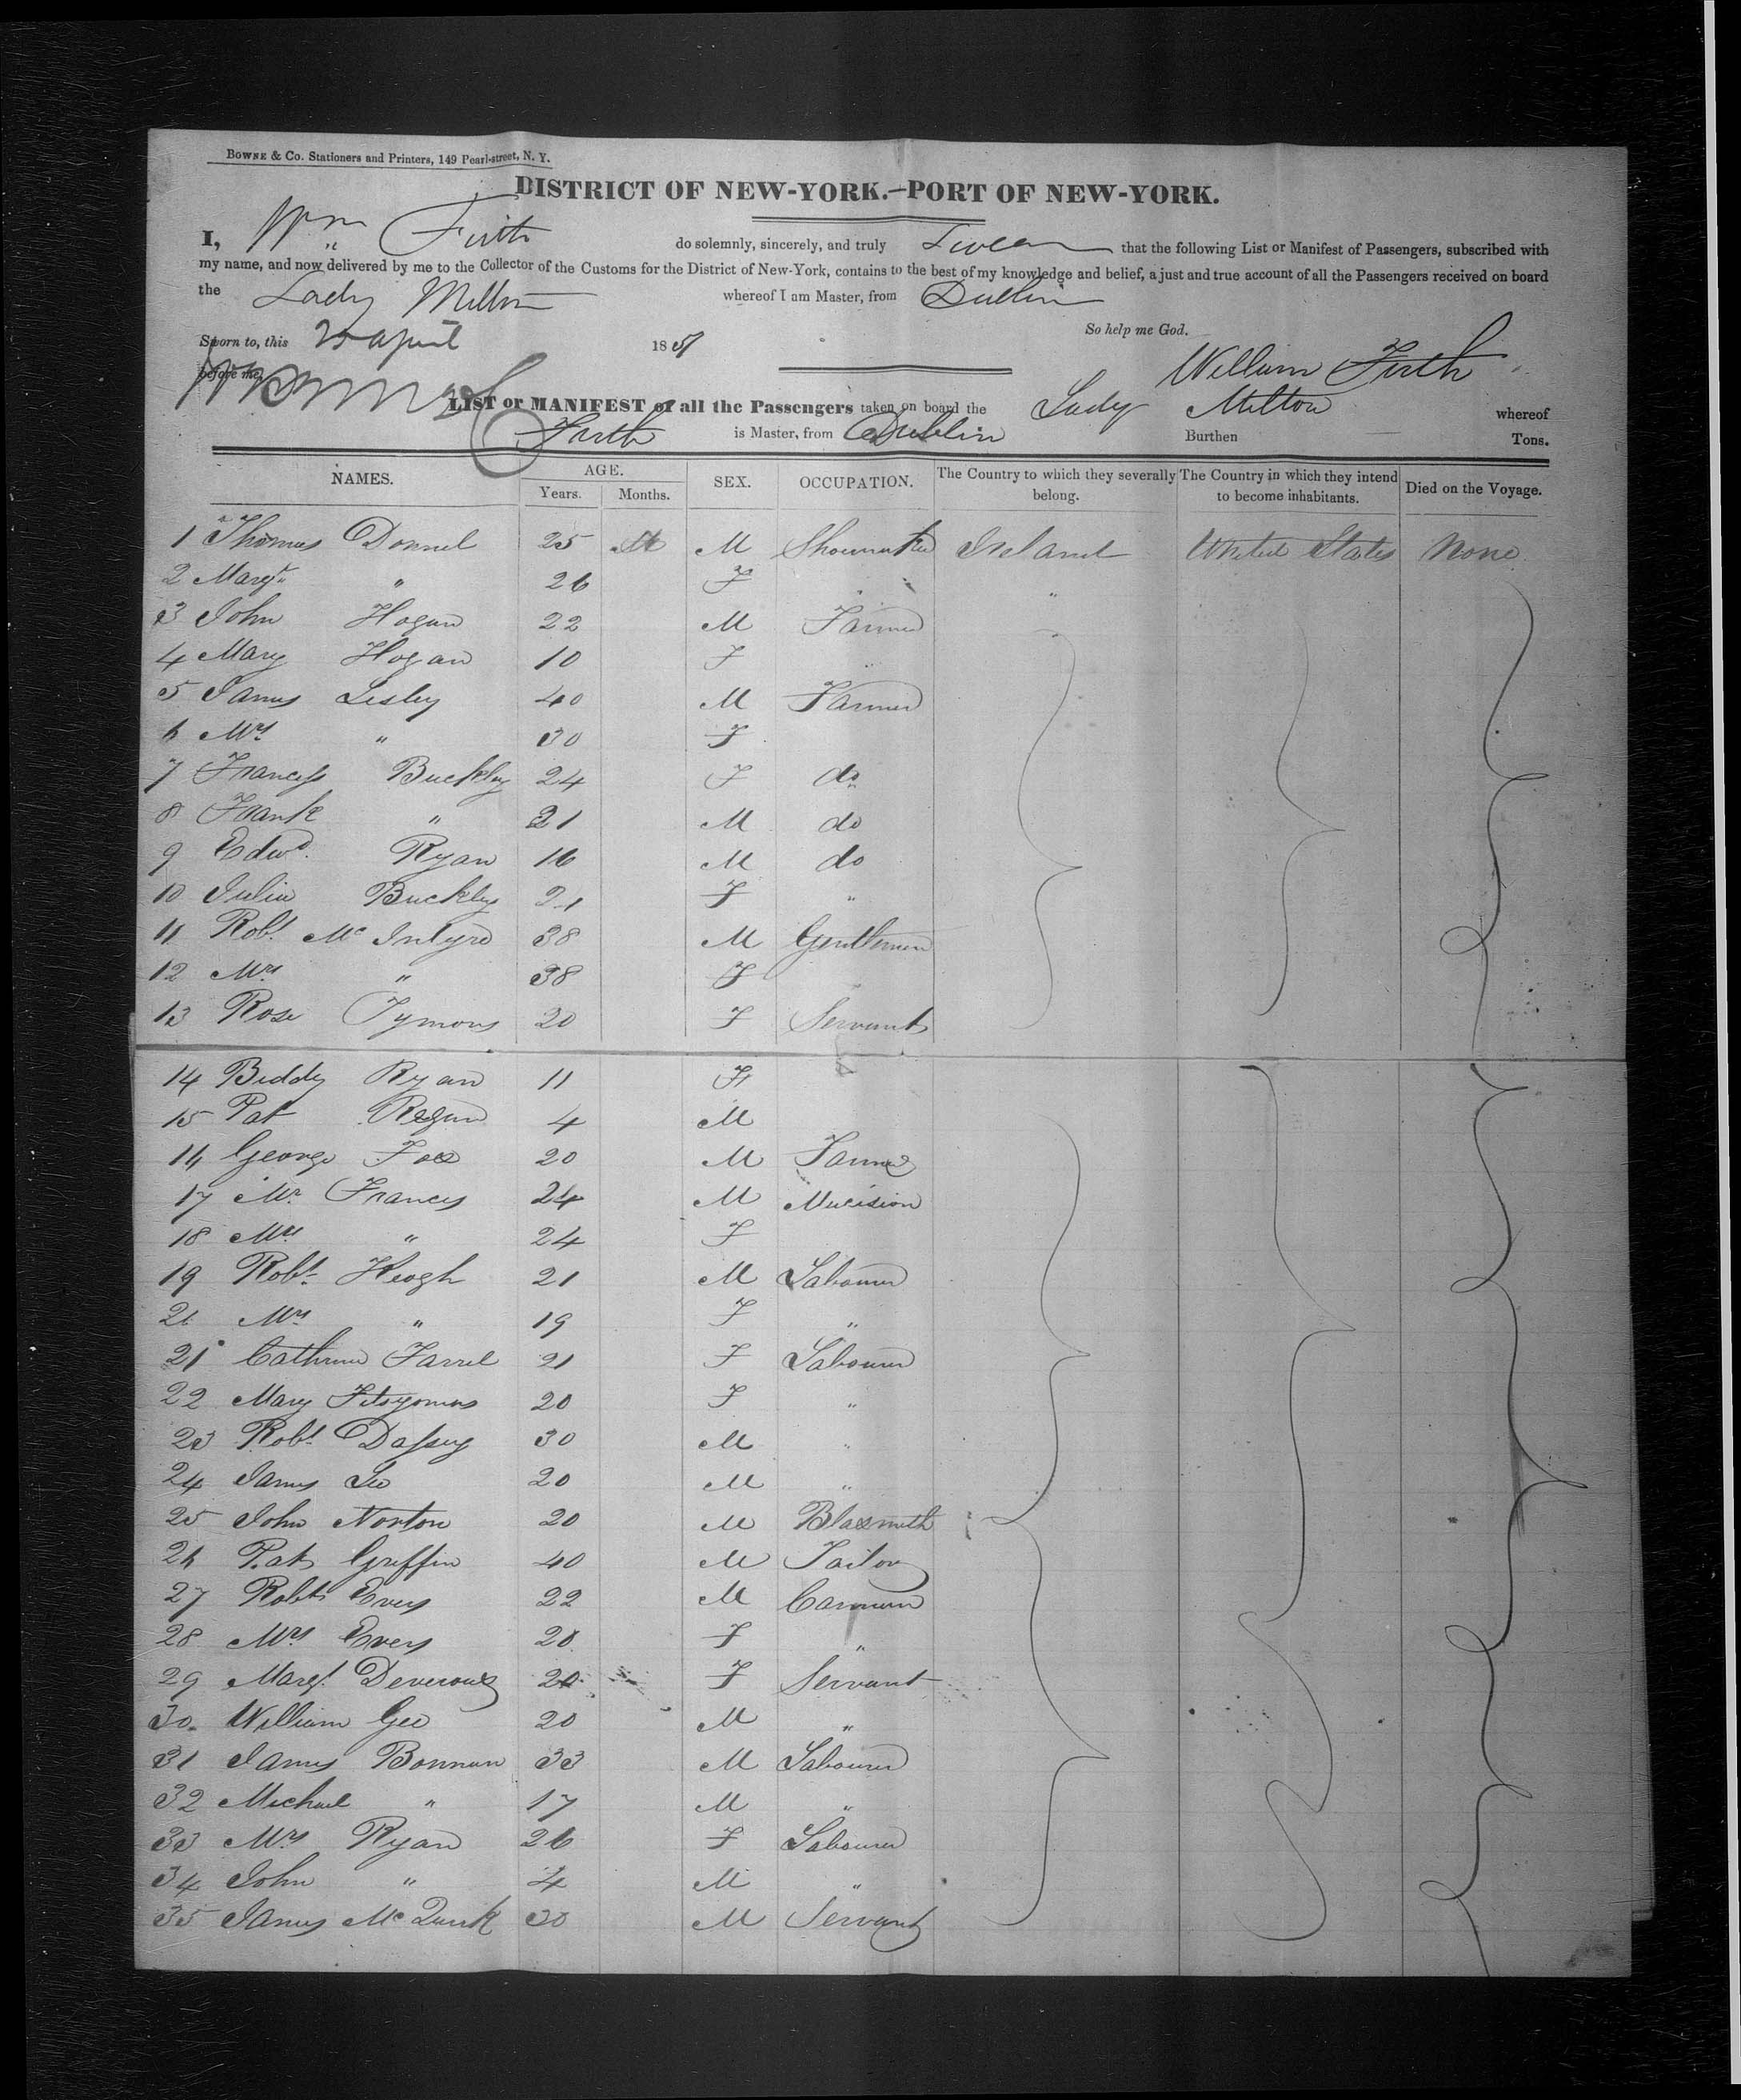 BOWNE & Co. Stationers and Printers, 149 Pearl-street, N. Y.
DISTRICT OF NEW-YORK.—PORT OF NEW-YORK.
I, Wm Firth do solemnly, sincerely, and truly Swear that the following List or Manifest of Passengers, subscribed with
my name, and now delivered by me to the Collector of the Customs for the District of New-York, contains to the best of my knowledge and belief, a just and true account of all the Passengers received on board
the Lady Milton whereof I am Master, from Dublin
So help me God.
Sworn to, this 25 april 1851
before me, William Firth
LIST or MANIFEST of all the Passengers taken on board the Lady Milton whereof
Firth is Master, from Dublin Burthen Tons.
NAMES. AGE. Years. Months. SEX. OCCUPATION. The Country to which they severally belong. The Country in which they intend to become inhabitants. Died on the Voyage.
1 Thomas Donnel 25 M M Shoemaker Ireland United States None
2 Margt " 26 F " "
3 John Hogan 22 M Farmer
4 Mary Hogan 10 F "
5 James Lesley 40 M Farmer
6 Mrs " 30 F
7 Francess Buckley 24 F do
8 Frank " 21 M do
9 Edwd. Ryan 16 M do
10 Julia Buckley 21 F "
11 Robt. Mc Intyre 38 M Gentleman
12 Mrs " 38 F
13 Rose Tymons 20 F Servant
14 Biddy Ryan 11 F
15 Pat Regan 4 M
16 George Fox 20 M Farmer
17 Mr Frances 24 M Mucision
18 Mrs " 24 F
19 Robt Keogh 21 M Labourer
20 Mrs " 19 F "
21 Cathrine Farrel 21 F Labourer
22 Mary Fitsgomons 20 F "
23 Robt Dassey 30 M "
24 James Lee 20 M "
25 John Norton 20 M Blaxmith
26 Pat Griffin 40 M Tailor
27 Robt Evers 22 M Carman
28 Mrs Evers 20 F "
29 Margt. Deveroux 20 F Servant
30 William Gee 20 M "
31 James Bonnan 33 M Labourer
32 Michael " 17 M "
33 Mrs Ryan 26 F Labourer
34 John " 4 M "
35 James Mc Quirk 30 M Servant